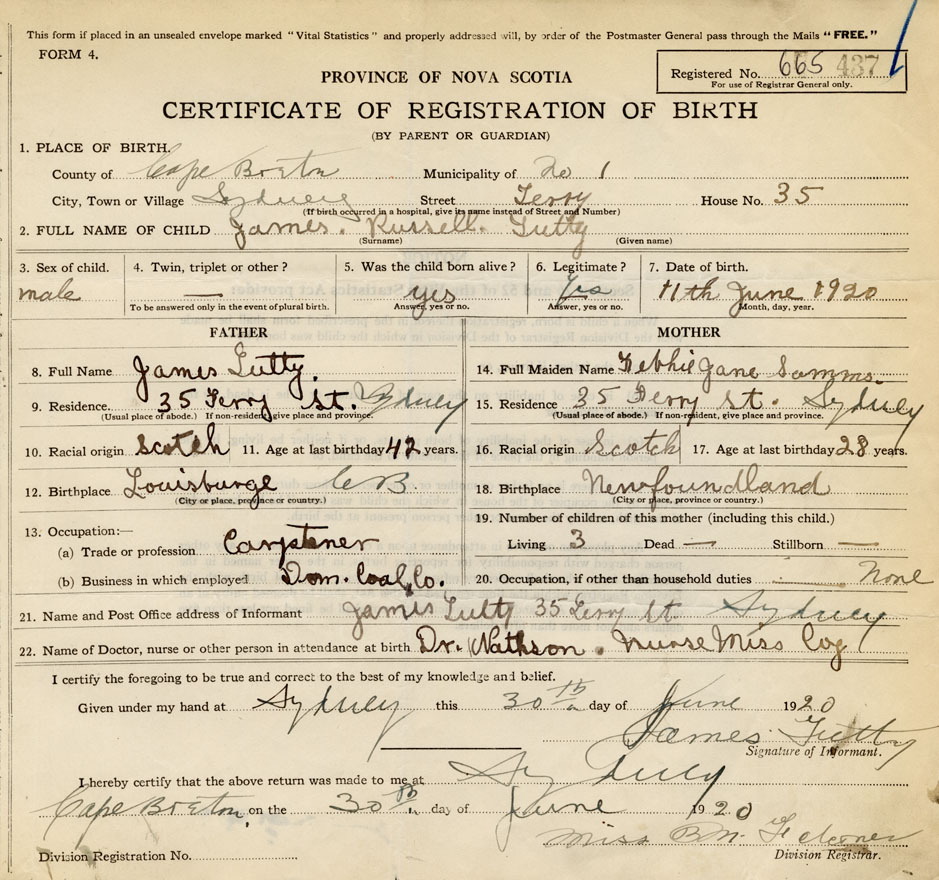 This form if placed in an unsealed envelope marked "Vital Statistics" and properly addressed will, by order of the Postmaster General pass through the Mails "FREE."
FORM 4.
Registered No. 665 437
For use of Registrar General only.
PROVINCE OF NOVA SCOTIA
CERTIFICATE OF REGISTRATION OF BIRTH
(BY PARENT OR GUARDIAN)
1. PLACE OF BIRTH.
County of Cape Breton Municipality of No 1
City, Town or Village Sydney Street Ferry House No. 35
(If birth occurred in a hospital, give its name instead of Street and Number)
2. FULL NAME OF CHILD James. Russell. Tutty
(Surname) (Given name)
3. Sex of child. 4. Twin, triplet or other? 5. Was the child born alive? 6. Legitimate? 7. Date of birth.
male — yes Yes 11th June 1920
To be answered only in the event of plural birth. Answer, yes or no. Answer, yes or no. Month, day, year.
FATHER
8. Full Name James Tutty.
9. Residence. 35 Ferry St. Sydney
(Usual place of abode.) If non-resident, give place and province.
10. Racial origin Scotch 11. Age at last birthday 42 years.
12. Birthplace Louisburge C B
(City or place, province or country.)
13. Occupation:—
(a) Trade or profession Carptener
(b) Business in which employed Dom. Coal Co.
MOTHER
14. Full Maiden Name Jane
15. Residence 35 Ferry St. Sydney
(Usual place of abode.) If non-resident, give place and province.
16. Racial origin Scotch 17. Age at last birthday 28 years.
18. Birthplace Newfoundland
(City or place, province or country.)
19. Number of children of this mother (including this child.)
Living 3 Dead — Stillborn —
20. Occupation, if other than household duties None
21. Name and Post Office address of Informant James Tutty 35 Ferry St. Sydney
22. Name of Doctor, nurse or other person in attendance at birth Dr. Nurse Miss
I certify the foregoing to be true and correct to the best of my knowledge and belief.
Given under my hand at Sydney this 30th day of June 1920
James Tutty
Signature of Informant.
I hereby certify that the above return was made to me at Sydney
Cape Breton, on the 30th day of June 1920
Miss B M.
Division Registration No. Division Registrar.